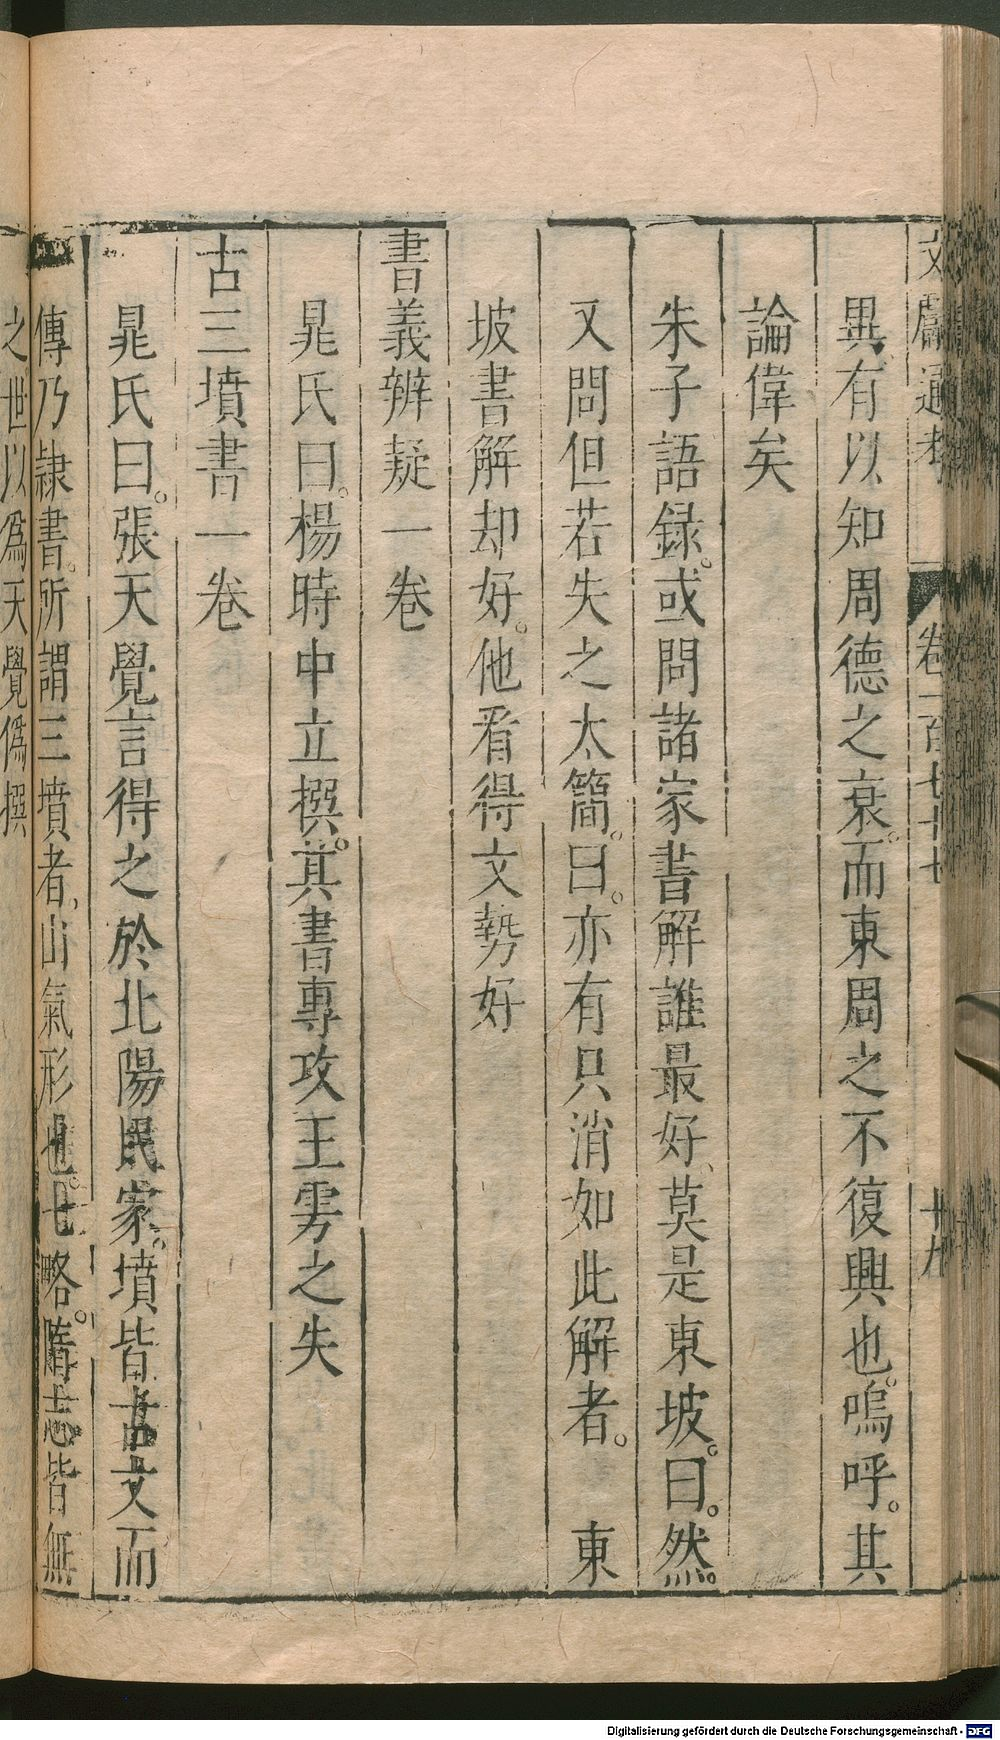 文獻通考 卷一百七十七 十九
異、有以知周德之衰。而東周之不復興也。嗚呼。其
論偉矣
朱子語録。或問諸家書解誰最好、莫是東坡。曰。然。
又問但若失之太簡。曰。亦有只消如此解者。 東
坡書解却好。他看得文勢好
書義辨疑一卷
晁氏曰。楊時中立撰。其書專攻王雱之失
古三墳書一卷
晁氏曰。張天覺言得之於北陽民家。墳皆古文而
傳乃隷書。所謂三墳者、山氣形也。七略。隋志皆無
之世以爲天覺僞撰
Digitalisierung gefördert durch die Deutsche Forschungsgemeinschaft - DFG